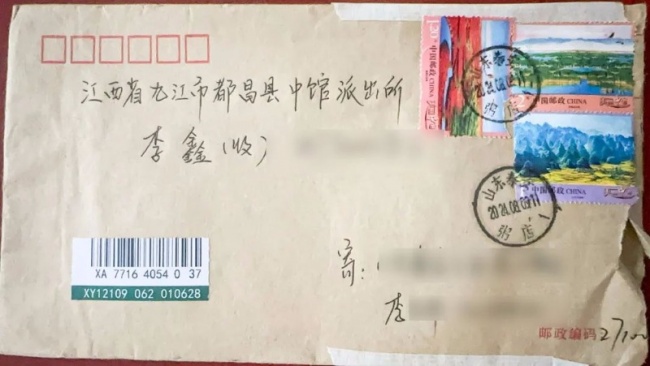 江西省九江市都昌县中馆派出所
李鑫(收)
1.20元
中国邮政 CHINA
中国邮政 CHINA
中国邮政 CHINA
山东泰安
2024.08.09.11
粥店
山东泰安
2024.08.09.11
粥店
XA 7716 4054 0 37
XY12109 062 010628
寄:
李
邮政编码 27100